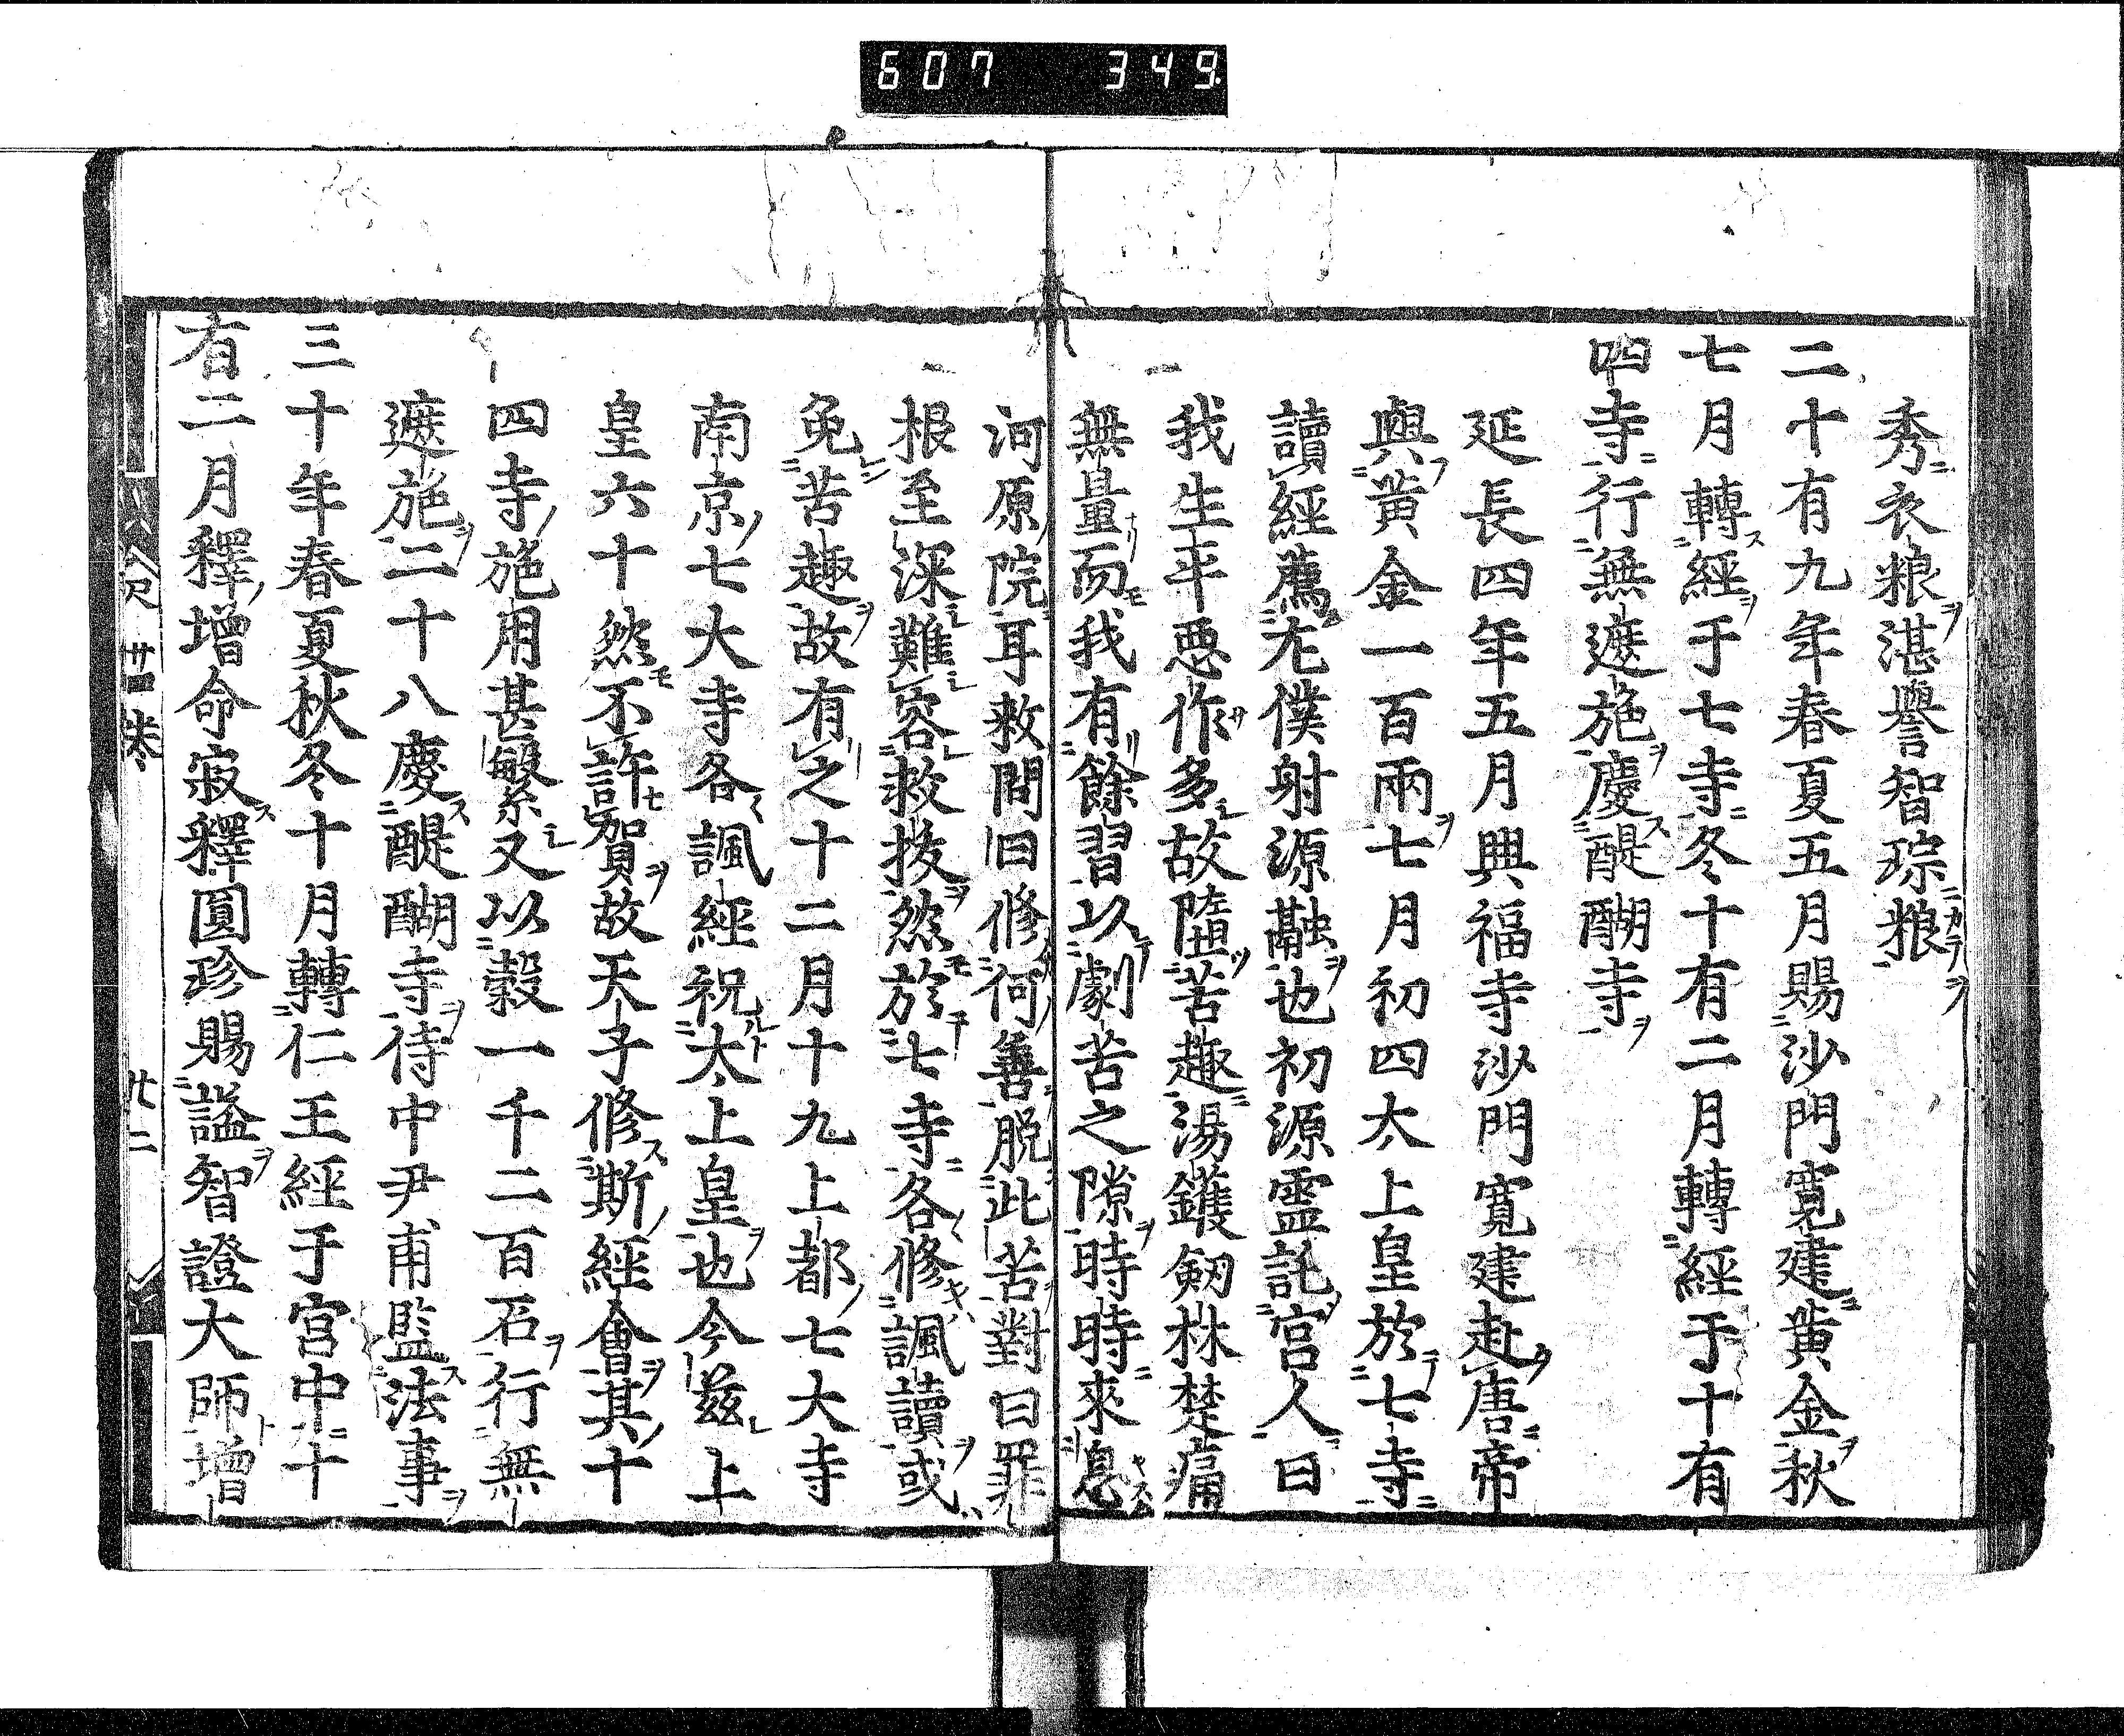 607 349
秀衣粮湛譽智琮粮
二十有九年春夏五月賜沙門寛建黄金秋
七月轉經于七寺冬十有二月轉經于十有
四寺行無遮施慶醍醐寺
延長四年五月興福寺沙門寛建赴唐帝
與黄金一百兩七月初四太上皇於七寺
讀經薦左僕射源融也初源靈託宮人曰
我生平悪作多故墮苦趣湯鑊剱林楚痛
無量而我有餘習以劇苦之隙時時來息
河原院耳敕問曰修何善脱此苦對曰罪
根至深難容救拔然於七寺各修諷讀或
免苦趣故有之十二月十九上都七大寺
南京七大寺各諷經祝太上皇也今茲上
皇六十然不許賀故天子修斯經會其十
四寺施用甚繁又以穀一千二百石行無
遮施二十八慶醍醐寺侍中尹甫監法事
三十年春夏秋冬十月轉仁王經于宮中十
有二月釋增命寂釋圓珍賜謚智證大師增
廿四巻
廿二